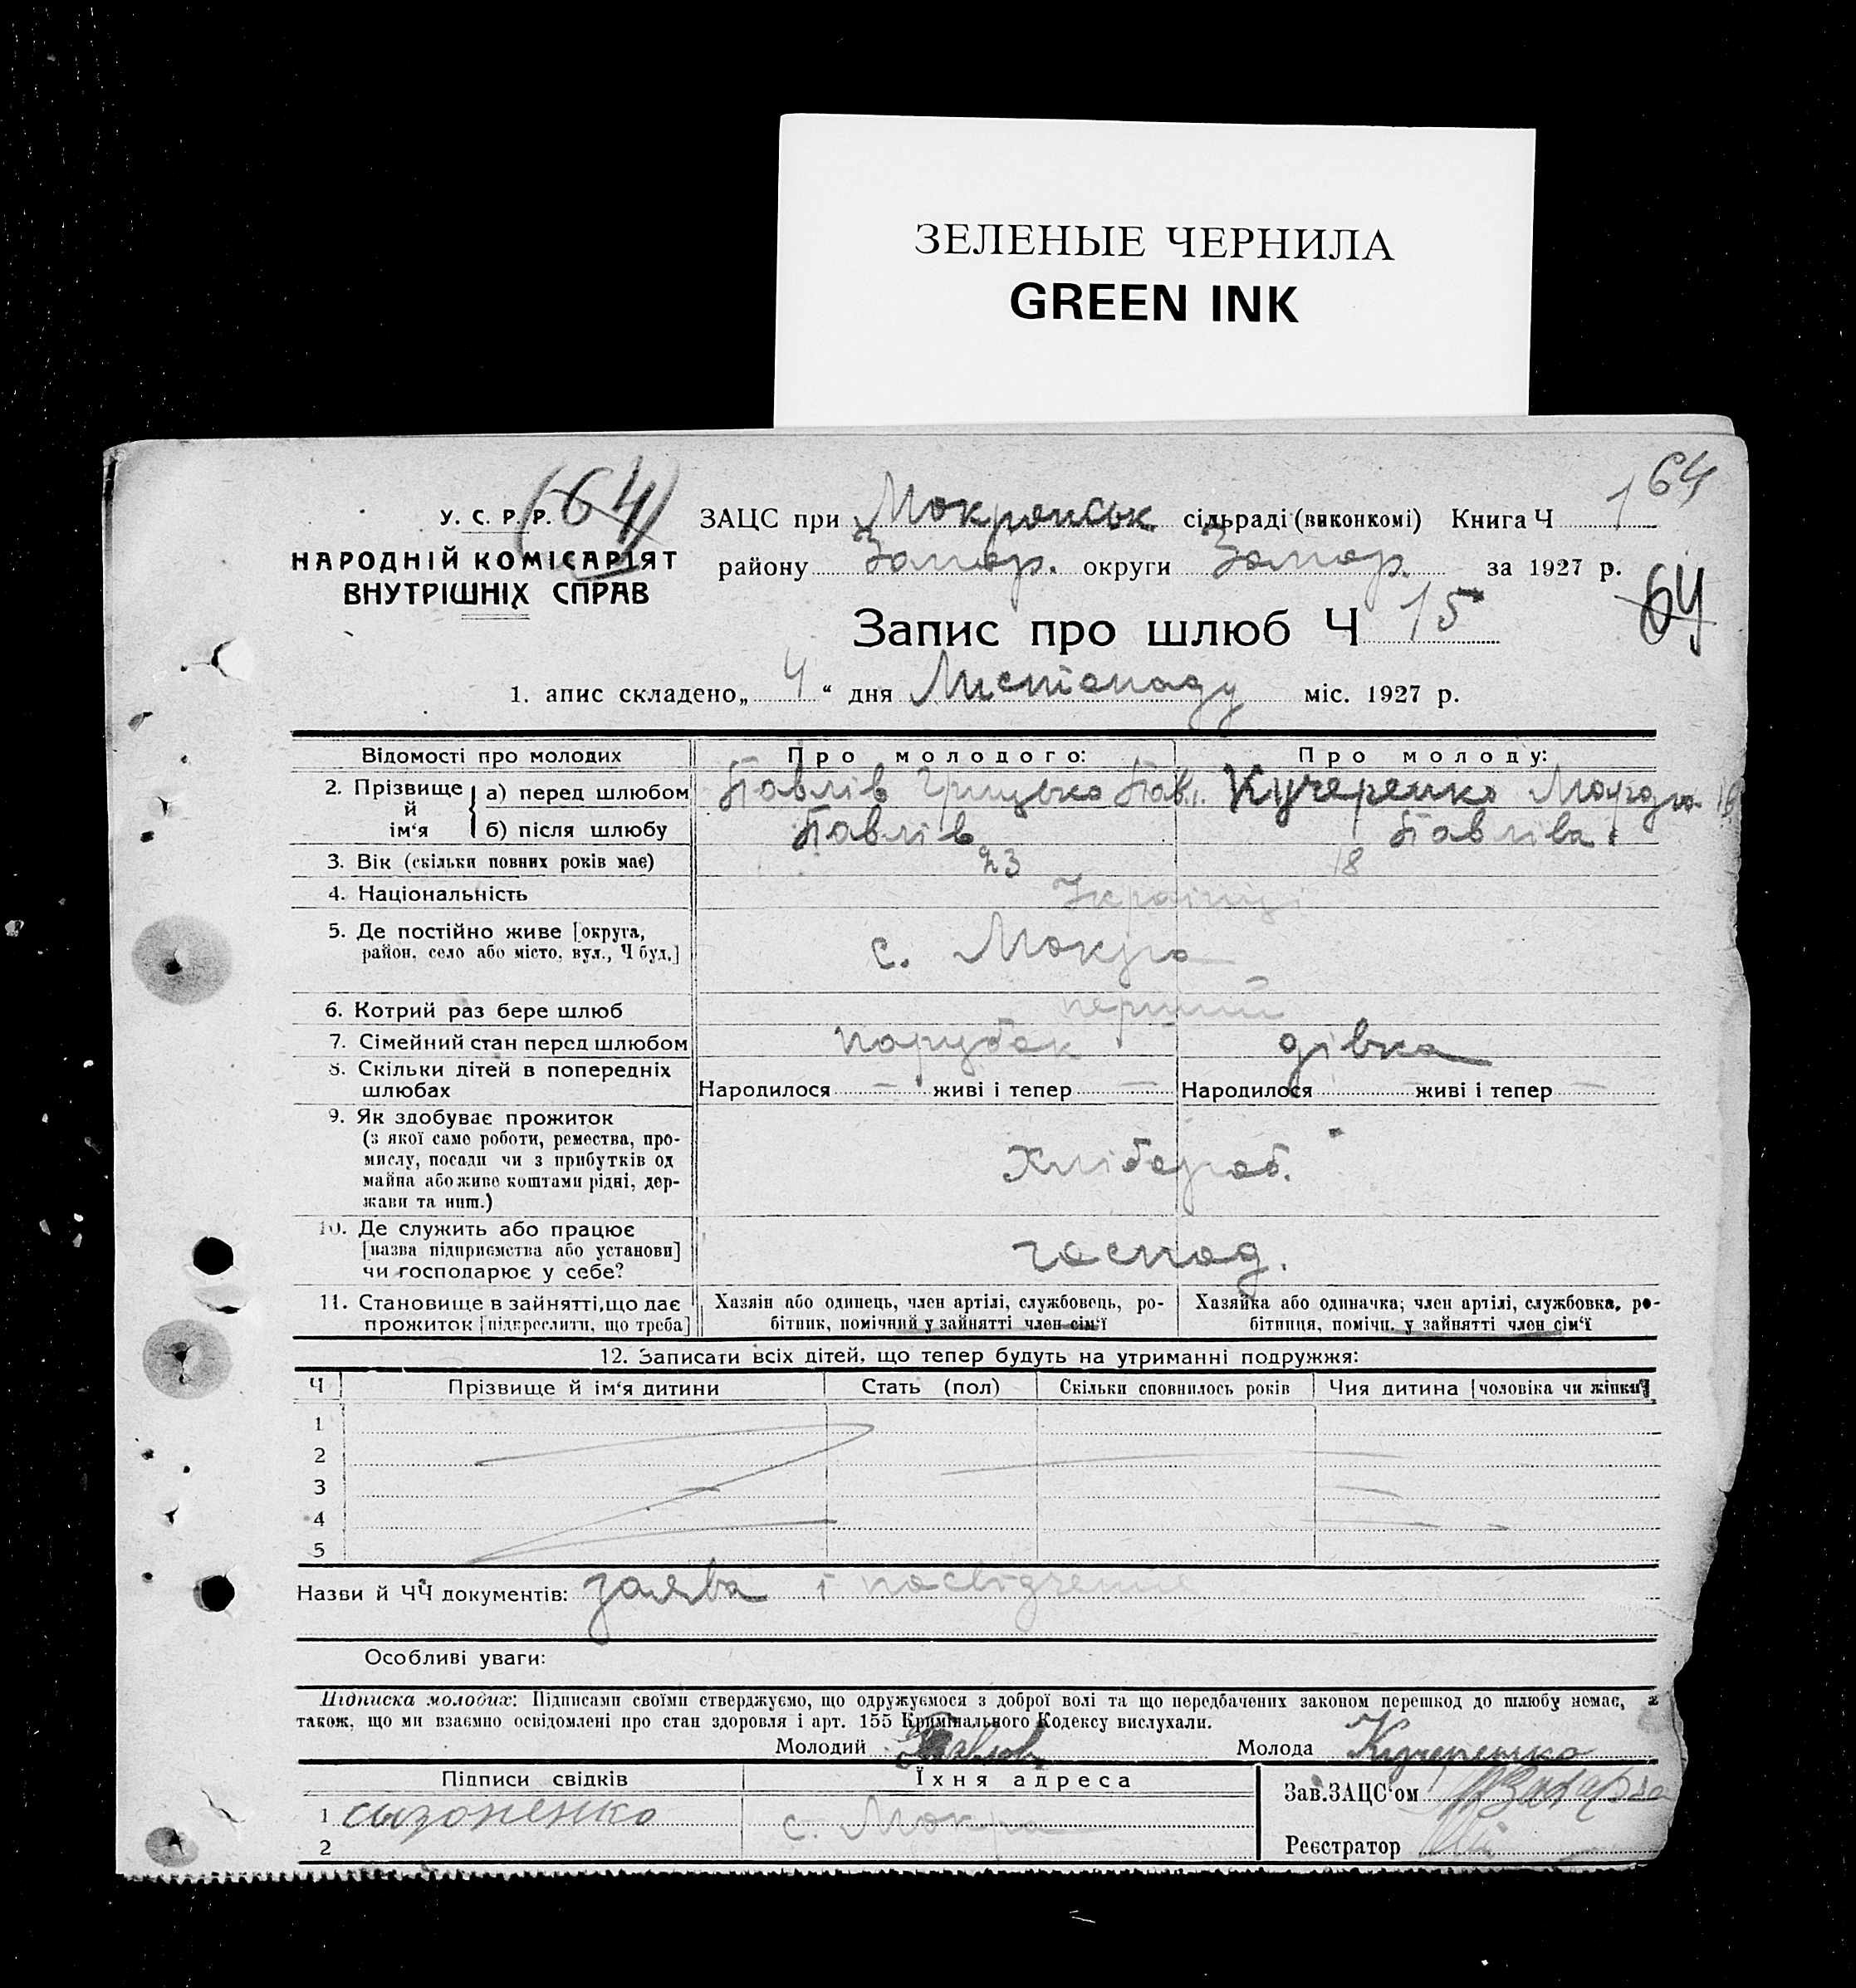 ЗЕЛЕНЫЕ ЧЕРНИЛА
GREEN INK
64
(64)
У. С. Р. Р.
НАРОДНІЙ КОМІСАРІЯТ
ВНУТРІШНІХ СПРАВ
ЗАЦС при Мокрянськ сільраді (виконкомі) Книга Ч 1
району Запор. округи Запор. за 1927 р.
64
Запис про шлюб Ч 15
1. апис складено „ 4 “ дня Листопаду міс. 1927 р.
Відомості про молодих Про молодого: Про молоду:
2. Прізвище й ім‘я а) перед шлюбом Павлів Грицько Пав. Кучеренко
б) після шлюбу Павлів Павліва
3. Вік (скільки повних років має) 23 18
4. Національність Українці
5. Де постійно живе [округа,
район, село або місто, вул., Ч буд.] с. Мокра
6. Котрий раз бере шлюб перший
7. Сімейний стан перед шлюбом парубок дівка
8. Скільки дітей в попередніх
шлюбах Народилося — живі і тепер — Народилося — живі і тепер —
9. Як здобуває прожиток
(з якої саме роботи, ремества, про-
мислу, посади чи з прибутків од
майна або живе коштами рідні, дер-
жави та инш.) Хлібороб.
10. Де служить або працює
[назва підприємства або установи]
чи господарює у себе? господ.
11. Становище в зайнятті, що дає
прожиток [підкреслити, що треба]
Хазяін або одинець, член артілі, службовець, ро-
бітник, помічний у зайнятті член сім‘ї
Хазяйка або одиначка; член артілі, службовка, ро-
бітниця, помічн. у зайнятті член сім‘ї
12. Записати всіх дітей, що тепер будуть на утриманні подружжя:
Ч Прізвище й ім‘я дитини Стать (пол) Скільки сповнилось років Чия дитина [чоловіка чи жінки]
1
2
3
4
5
Назви й ЧЧ документів: заява і посвідчення
Особливі уваги:
Підписка молодих: Підписами своїми стверджуємо, що одружуємося з доброї волі та що передбачених законом перешкод до шлюбу немає, а
також, що ми взаємно освідомлені про стан здоровля і арт. 155 Кримінального Кодексу вислухали.
Молодий Павлов Молода Кучеренко
Підписи свідків Їхня адреса
Зав.ЗАЦС‘ом
1 сызоненко с. Мокра
2
Реєстратор